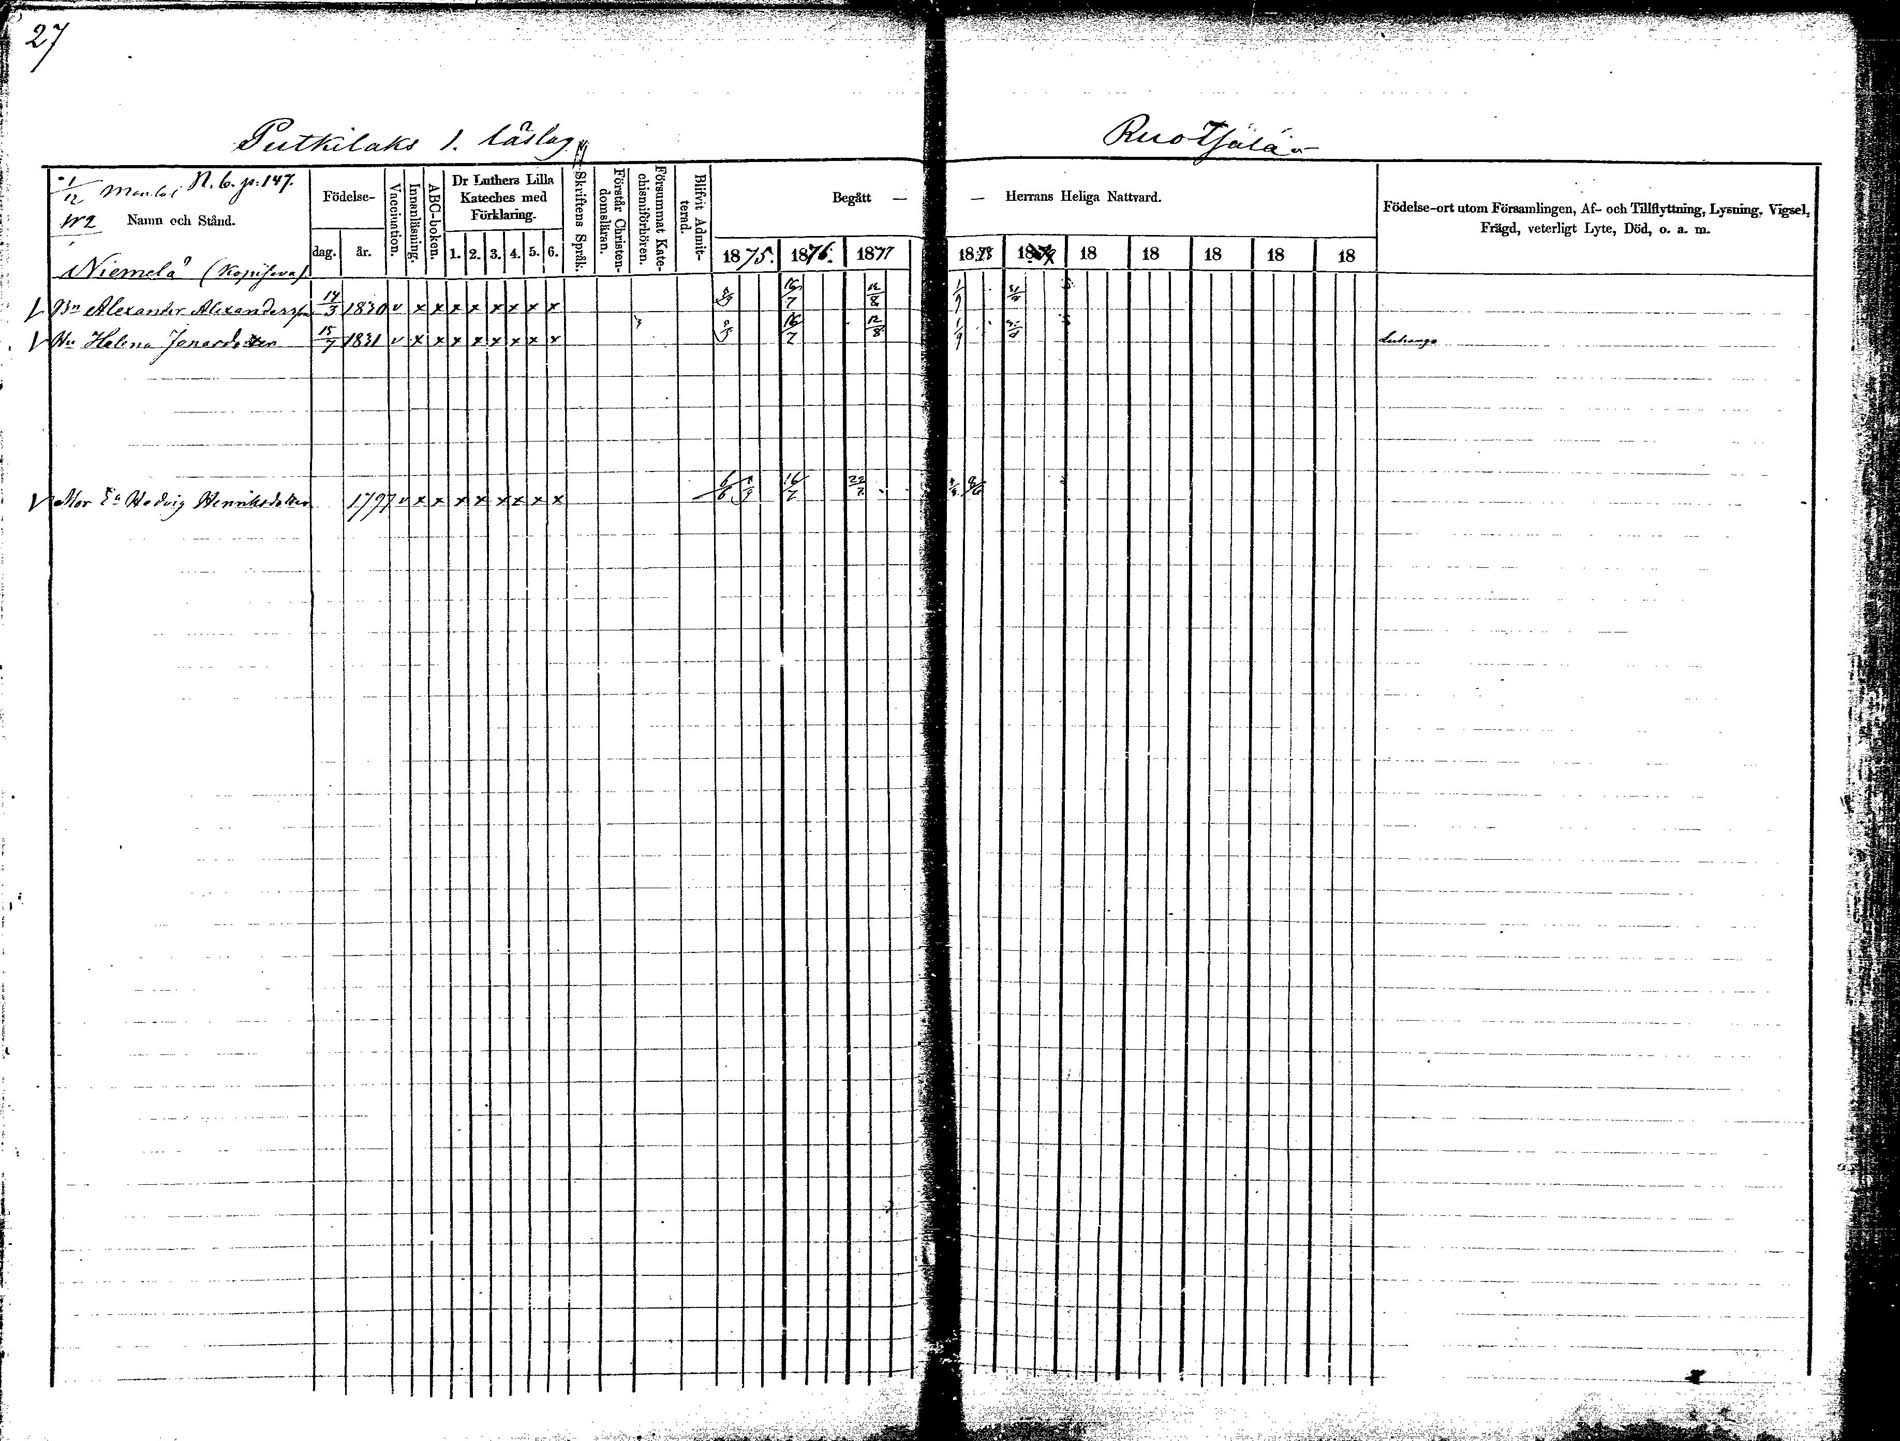 27
Putkilaks 1. läslag
Ruotsälä
1/12 Mantal N. 6. p. 147.
N 2
Namn och Stånd.
Födelse-
dag. år.
Vaccination.
Innanläsning.
ABC-boken.
Dr Luthers Lilla Kateches med Förklaring.
1. 2. 3. 4. 5. 6.
Skriftens Språk.
Förstår Christendomsläran.
Försummat Katechismiförhören.
Blifvit Admitterad.
Begått — — Herrans Heliga Nattvard.
1875. 1876. 1877 1878 1879 18 18 18 18 18
Födelse-ort utom Församlingen, Af- och Tillflyttning, Lysning, Vigsel,
Frägd, veterligt Lyte, Död, o. a. m.
Niemelä
Bn Alexander Alexandersson 17/3 1830 v x x x x x x x x 16/7 12/8 1/9
Hu Helena Jonasdotter 15/7 1831 v x x x x x x x x 16/7 12/8 1/9
Mor Hedvig Henriksdotter 1797 v x x x x x x x x 6/6 16/7 22/7